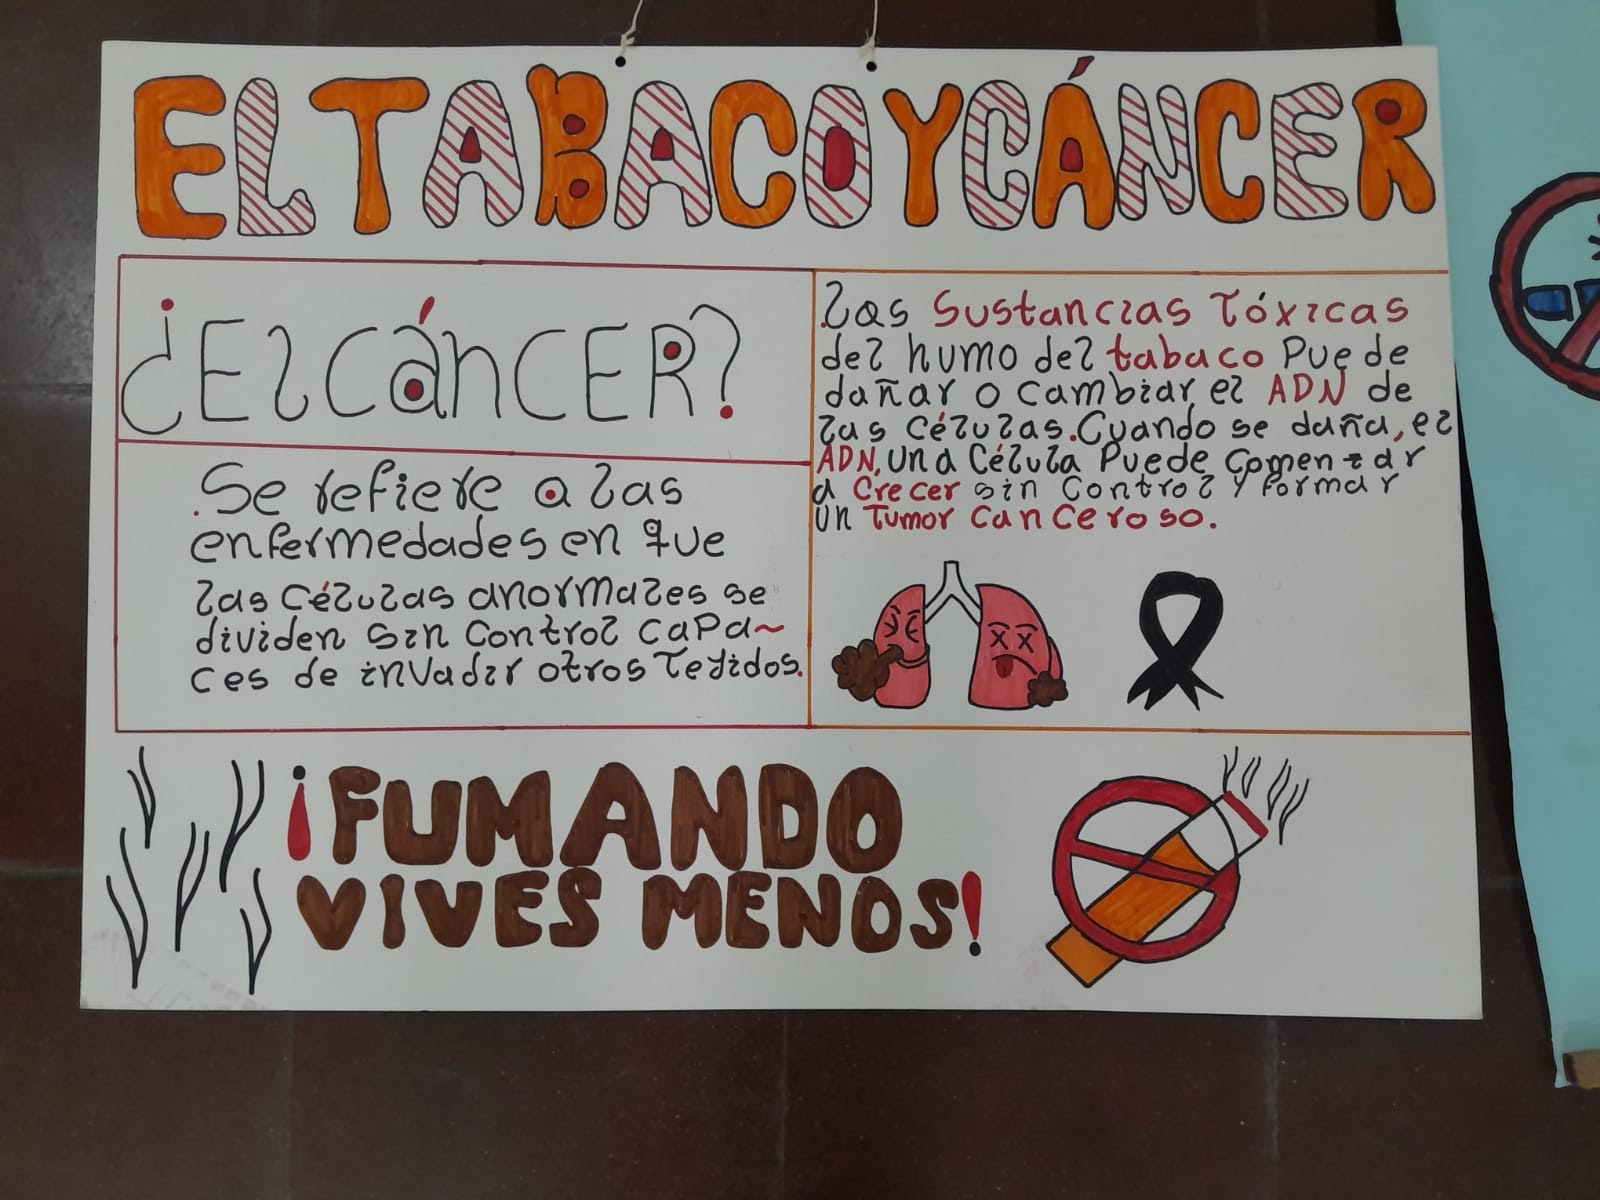 EL TABACO Y CÁNCER
¿El cáncER?
Se refiere a las
enfermedades en que
las células anormales se
dividen sin control capa~
ces de invadir otros tejidos.
Las Sustancias Tóxicas
del humo del tabaco Puede
dañar o cambiar el ADN de
las células. Cuando se daña, el
ADN, una célula Puede comenzar
a Crecer sin control y formar
un Tumor canceroso.
¡FUMANDO
VIVES MENOS!